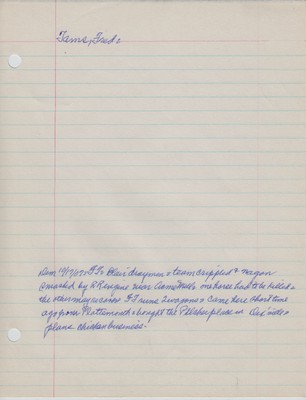 Tams, Fred:
Dem 10/17/07: F.T. Blair drayman: team crippled & wagon
smashed by RR engine near Camefields one horse had to be killed:
the other may recover F.T runs 2 wagons: Came here short time
ago from Plattsmouth: bought the Pilsher place in &
plans chicken business.